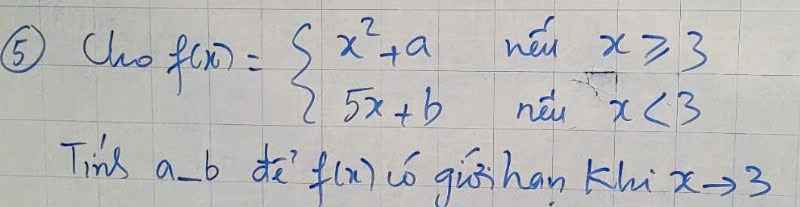 ⑤ Cho f(x) = { x² + a nếu x ≥ 3
5x + b nếu x < 3
Tính a_b để f(x) có giới hạn khi x → 3